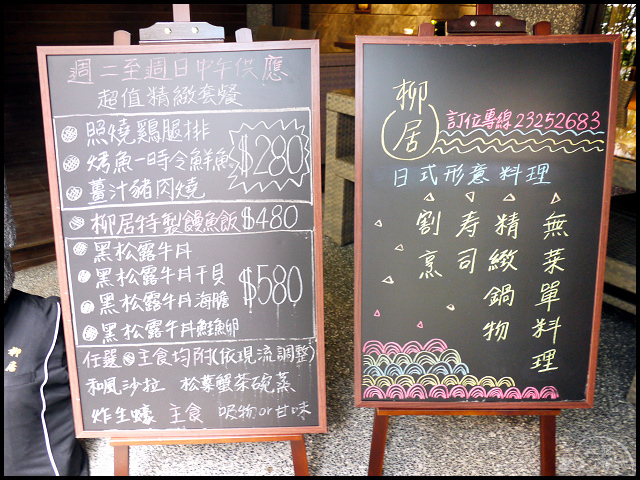 週二至週日中午供應
超值精緻套餐
照燒鷄腿排
烤魚-時令鮮魚
薑汁豬肉燒
$280
柳居特製鰻魚飯 $480
黑松露牛丼
黑松露牛丼干貝
黑松露牛丼海膽
黑松露牛丼鮭魚卵
$580
任選 主食均附(依現流調整)
和風沙拉 松葉蟹茶碗蒸
炸生蠔 主食 吸物or甘味
柳居
訂位專線23252683
日式形意料理
無菜單料理
精緻鍋物
寿司
割烹
柳居